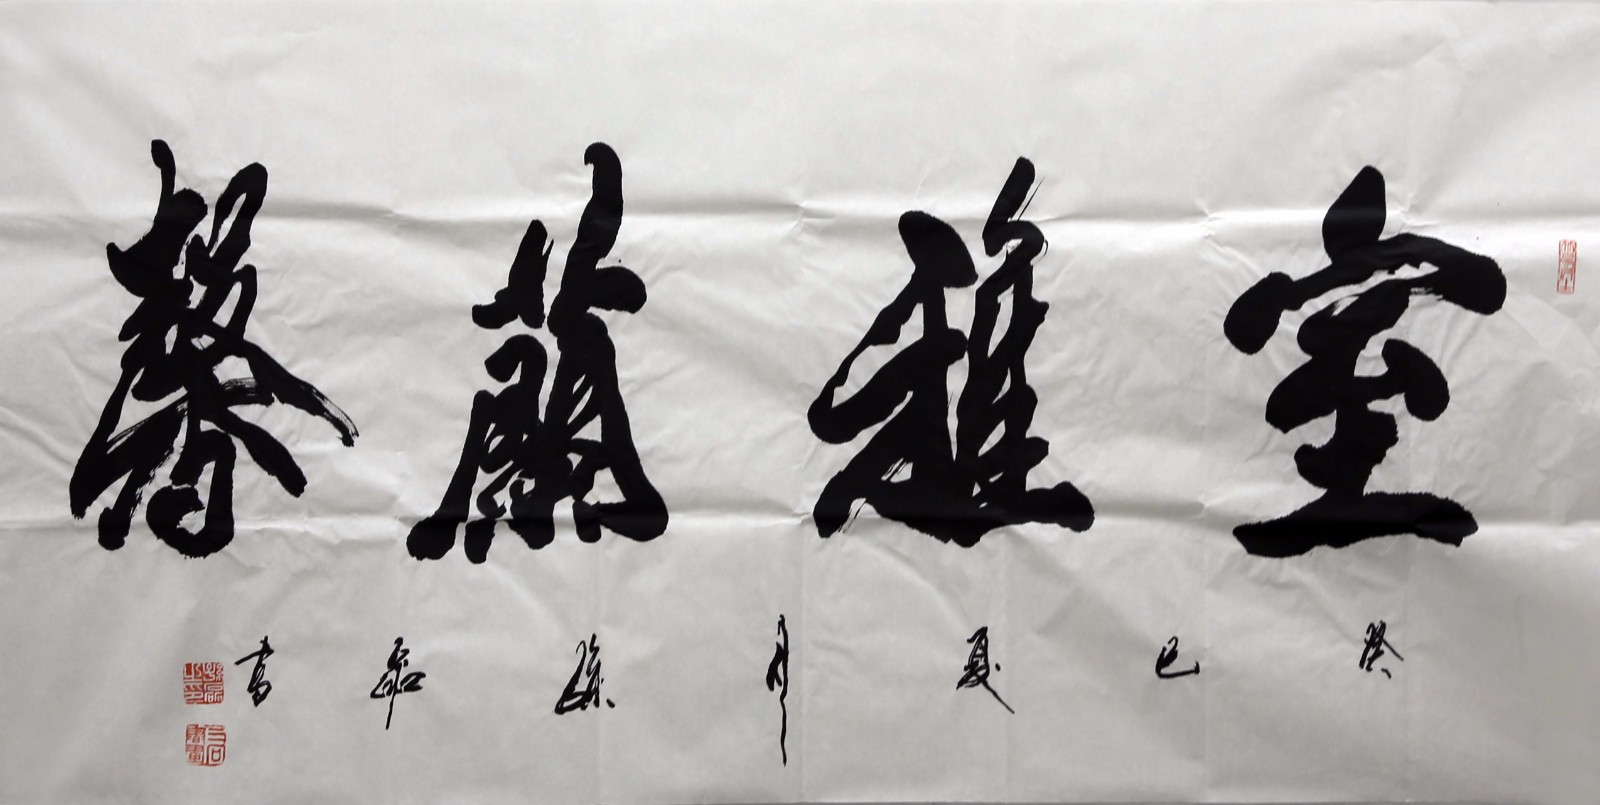 室雅蘭馨
癸巳夏月孫磊書